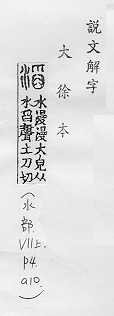 說文解字
大徐本
滔
水漫漫大皃从
水舀聲土刀切
(水部.VII上.p4.a10.)